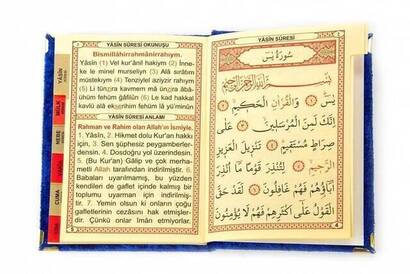 YÂSÎN SÛRESİ OKUNUŞU
Bismillâhirrahmânirrahıym.
Yâsîn (1) Vel kur'ânil hakiym (2) İnne-
ke le minel murseliyn (3) Alâ sırâtım
müstekıym (4) Tenziylel aziyzir rahıym
(5) Li tünzira kavmem mâ ünzira âbâ-
ühüm fehüm ğâfilûn (6) Le kad hakkal
kavlü alâ ekserihim fehüm lâ yü'minûn
YÂSÎN SÛRESİ ANLAMI
Rahman ve Rahim olan Allah'ın İsmiyle.
1. Yâsîn, 2. Hikmet dolu Kur'an hakkı
için, 3. Sen şüphesiz peygamberler-
densin. 4. Dosdoğru yol üzerindesin.
5. (Bu Kur'an) Gâlip ve çok merha-
metli Allah tarafından indirilmiştir. 6.
Babaları uyarılmamış, bu yüzden
kendileri de gaflet içinde kalmış bir
toplumu uyarman için indirilmiş-
tir. 7. Yemin olsun ki onların çoğu
gafletlerinin cezasını hak etmişler-
dir. Çünkü onlar İman etmiyorlar.
5
YÂSÎN
MÜLK
NEBE
CUMA
YÂSÎN SÛRESİ
سُورَةُ يٰسٓ
بِسْمِ اللّٰهِ الرَّحْمٰنِ الرَّحِيمِ
يٰسٓ ﴿١﴾ وَالْقُرْاٰنِ الْحَكِيمِ ﴿٢﴾
اِنَّكَ لَمِنَ الْمُرْسَلِينَ ﴿٣﴾ عَلٰى
صِرَاطٍ مُسْتَقِيمٍ ﴿٤﴾ تَنْزِيلَ الْعَزِيزِ
الرَّحِيمِ ﴿٥﴾ لِتُنْذِرَ قَوْمًا مَٓا اُنْذِرَ
اٰبَٓاؤُهُمْ فَهُمْ غَافِلُونَ ﴿٦﴾ لَقَدْ حَقَّ
الْقَوْلُ عَلٰٓى اَكْثَرِهِمْ فَهُمْ لَا يُؤْمِنُونَ
4